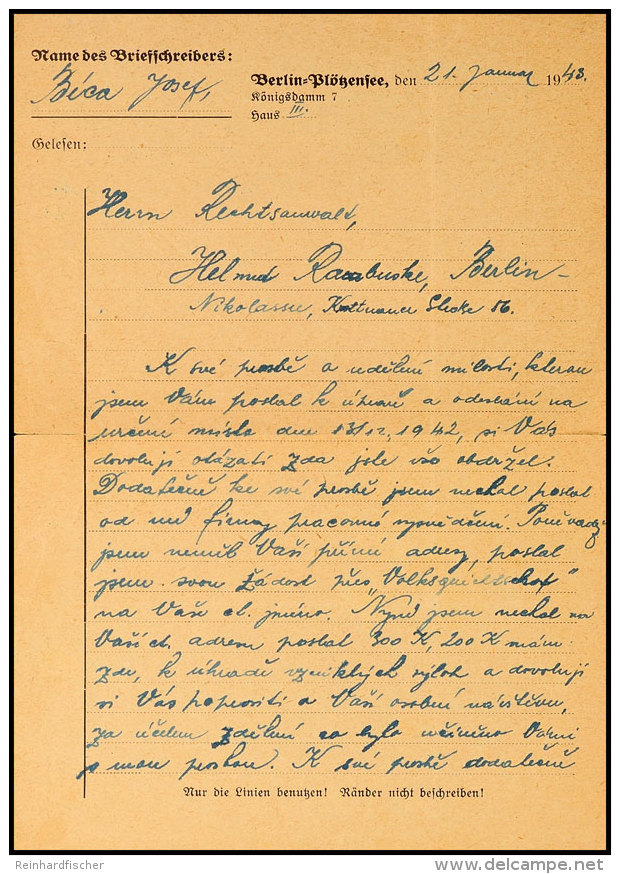 Name des Briefschreibers:
Bíca Josef,
Berlin-Plötzensee, den 21. Januar 1943.
Königsdamm 7
Haus III.
Gelesen:
Herrn Rechtsanwalt,
Berlin-
Nikolassee, 56.
K své prosbě a udělení milosti, kterou
jsem Vám poslal k úpravě a odeslání na
určené místo dne 13/12. 1942, si Vás
dovoluji otázati zda jste vše obdržel.
Dodatečně ke své prosbě jsem nechal poslat
od mé firmy pracovné vysvědčení. Poněvadž
jsem neměl Vaší přímé adresy, poslal
jsem svou žádost přes "Volksgerichtshof"
na Vaše ct. jméno. Nyní jsem nechal na
Vaší ct. adresu poslat 300 K, 200 K mám
zde, k úhradě vzniklých výloh a dovoluji
si Vás poprositi o Vaší osobní návštěvu,
za účelem zdělení co bylo učiněno Vámi
s mou prosbou. K své prosbě dodatečně
Nur die Linien benutzen! Ränder nicht beschreiben!
Reinhardfischer
delcampe.net